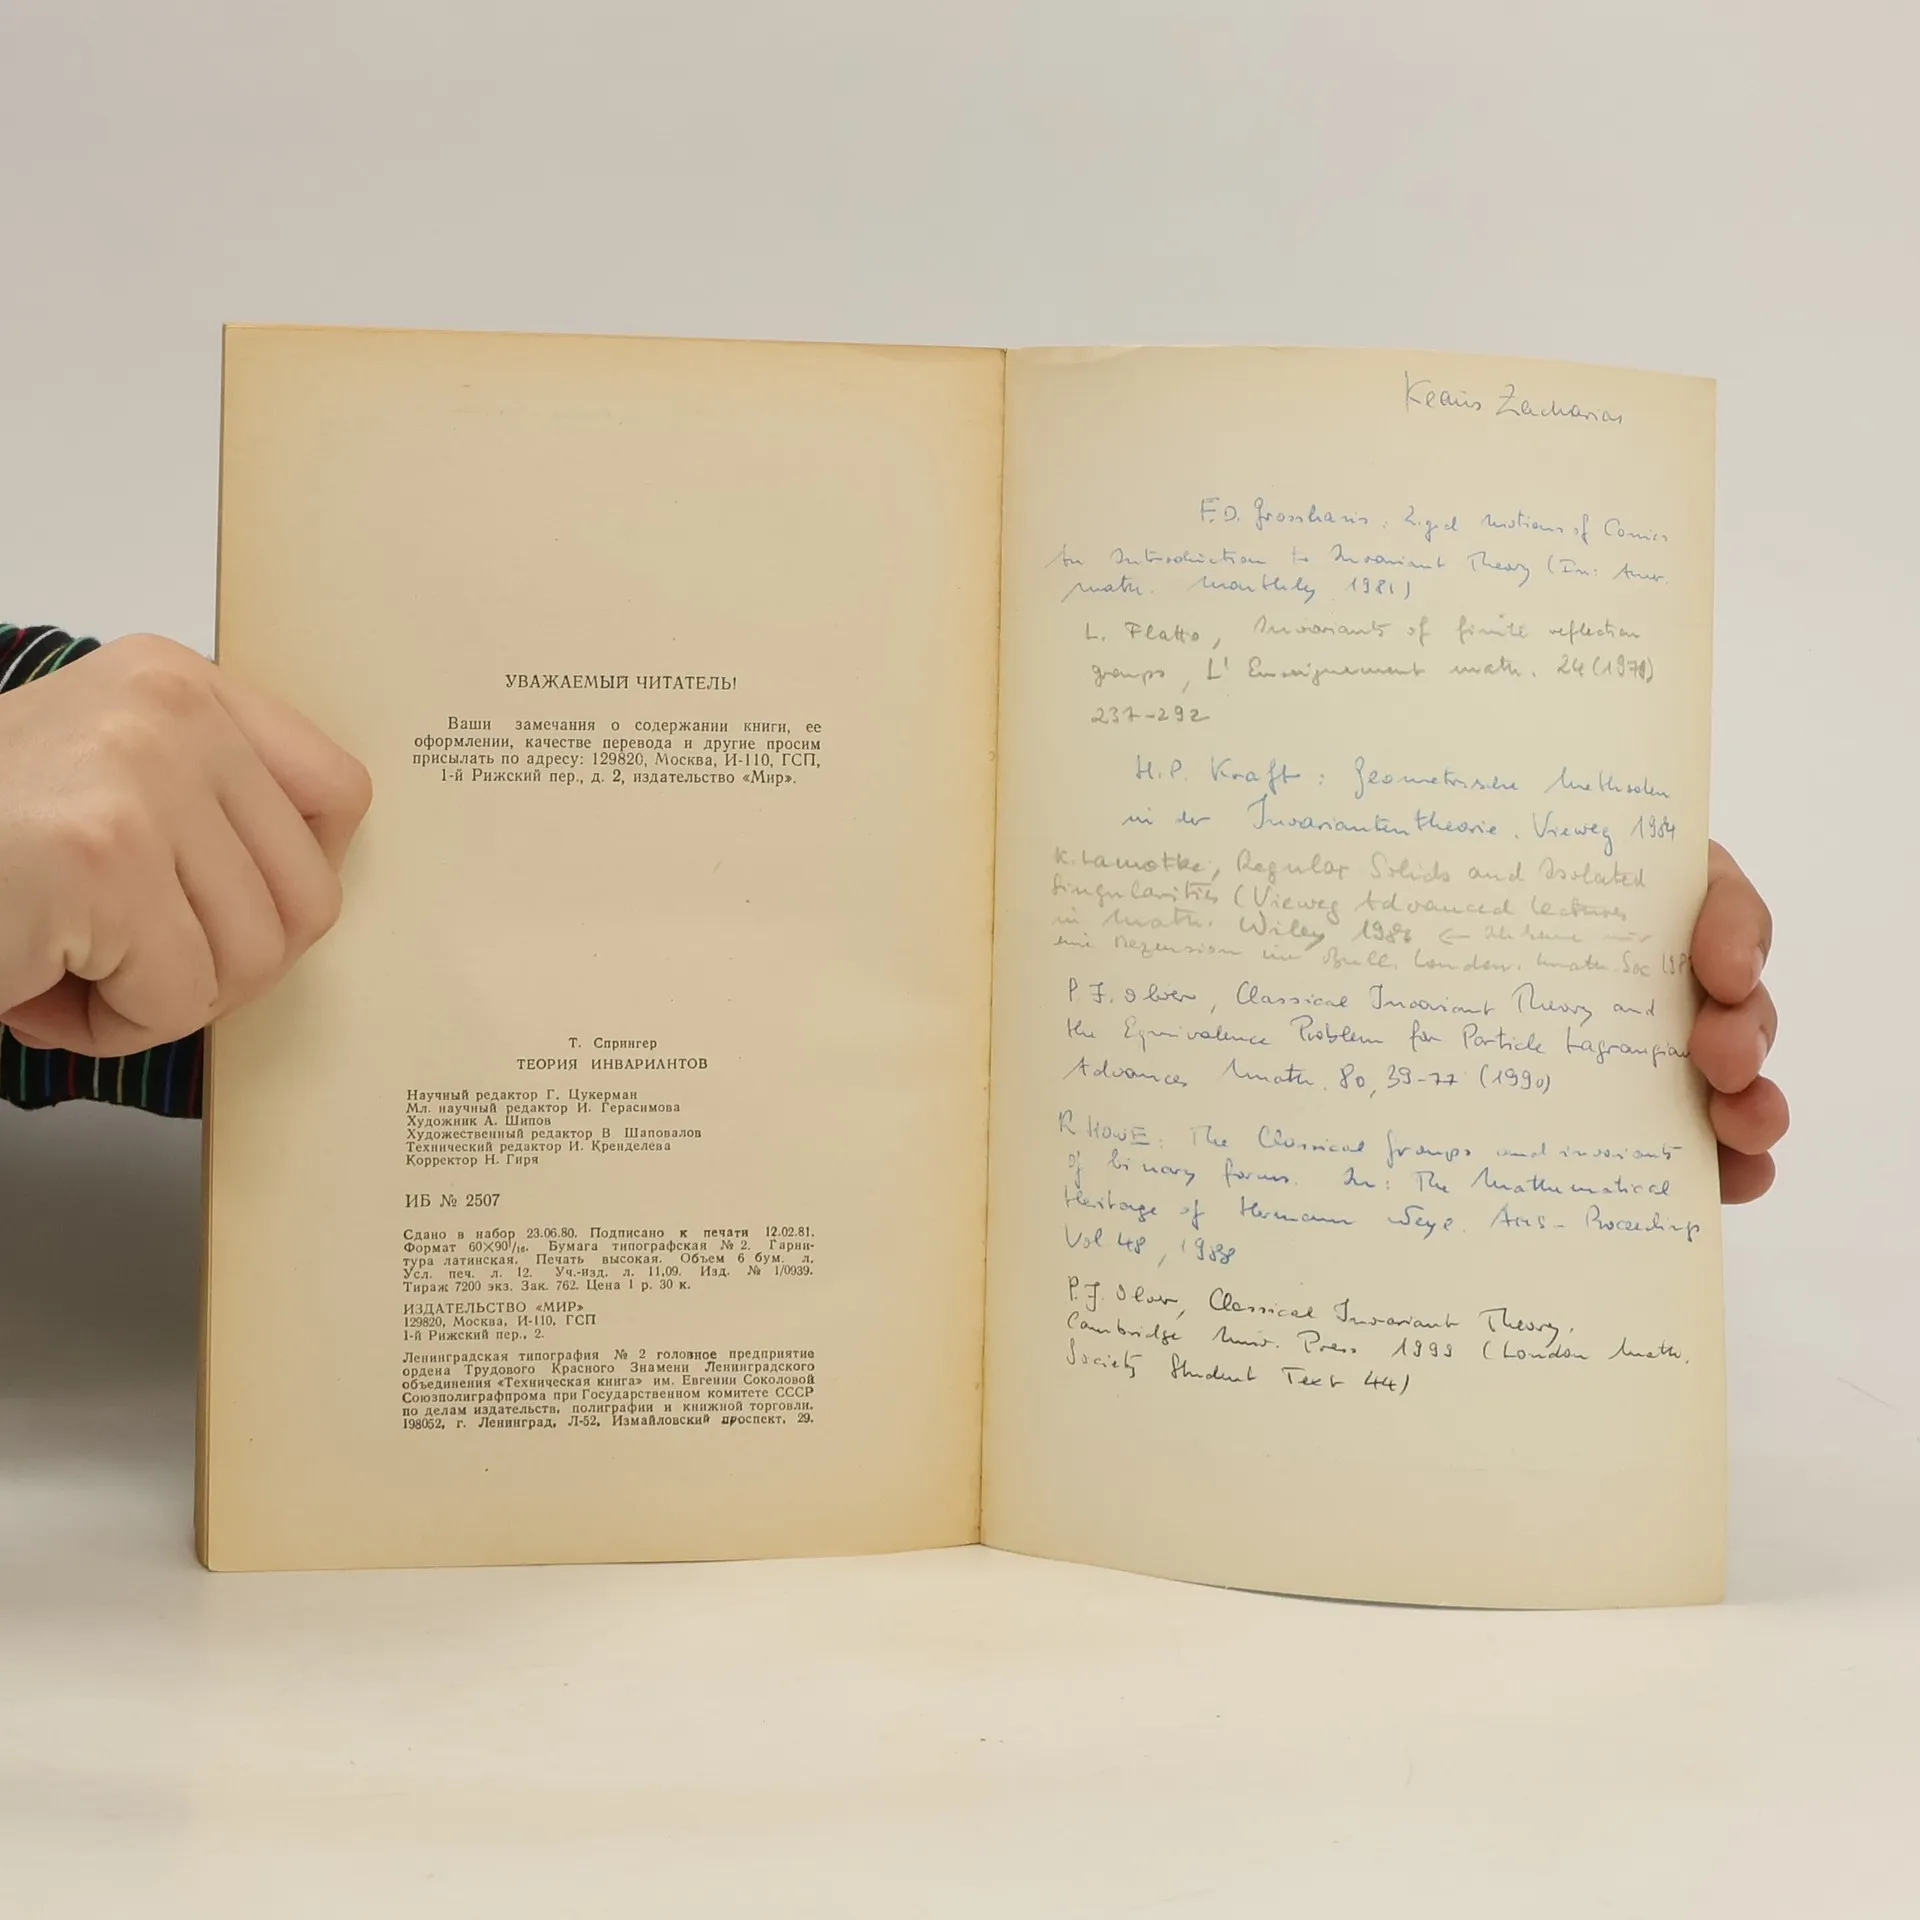 УВАЖАЕМЫЙ ЧИТАТЕЛЬ!
Ваши замечания о содержании книги, ее
оформлении, качестве перевода и другие просим
присылать по адресу: 129820, Москва, И-110, ГСП,
1-й Рижский пер., д. 2, издательство «Мир».
Т. Спрингер
ТЕОРИЯ ИНВАРИАНТОВ
Научный редактор Г. Цукерман
Мл. научный редактор И. Герасимова
Художник А. Шипов
Художественный редактор В. Шаповалов
Технический редактор И. Кренделева
Корректор Н. Гиря
ИБ № 2507
Сдано в набор 23.06.80. Подписано к печати 12.02.81.
Формат 60×90¹/₁₆. Бумага типографская № 2. Гарни-
тура латинская. Печать высокая. Объем 6 бум. л.
Усл. печ. л. 12. Уч.-изд. л. 11,09. Изд. № 1/0939.
Тираж 7200 экз. Зак. 762. Цена 1 р. 30 к.
ИЗДАТЕЛЬСТВО «МИР»
129820, Москва, И-110, ГСП
1-й Рижский пер., 2.
Ленинградская типография № 2 головное предприятие
ордена Трудового Красного Знамени Ленинградского
объединения «Техническая книга» им. Евгении Соколовой
Союзполиграфпрома при Государственном комитете СССР
по делам издательств, полиграфии и книжной торговли.
198052, г. Ленинград, Л-52, Измайловский проспект, 29.
Klaus Zacharias
F.D. Grosshans: Rigid Motions of Conics
An Introduction to Invariant Theory (In: Amer.
math. Monthly 1981)
L. Flatto, Invariants of finite reflection
groups, L'Enseignement math. 24 (1978)
237-292
H.P. Kraft: Geometrische Methoden
in der Invariantentheorie. Vieweg 1984
K. Lamotke, Regular Solids and Isolated
Singularities (Vieweg Advanced Lectures
in Math. Wiley 1986 ←
eine Rezension im Bull. London. Math. Soc
P.J. Olver, Classical Invariant Theory and
the Equivalence Problem for Particle Lagrangian
Advances Math. 80, 39-77 (1990)
R HOWE: The Classical groups and invariants
of binary forms. In: The Mathematical
Heritage of Hermann Weyl. AMS - Proceedings
Vol 48, 1988
P.J. Olver, Classical Invariant Theory,
Cambridge Univ. Press 1999 (London Math.
Society Student Text 44)